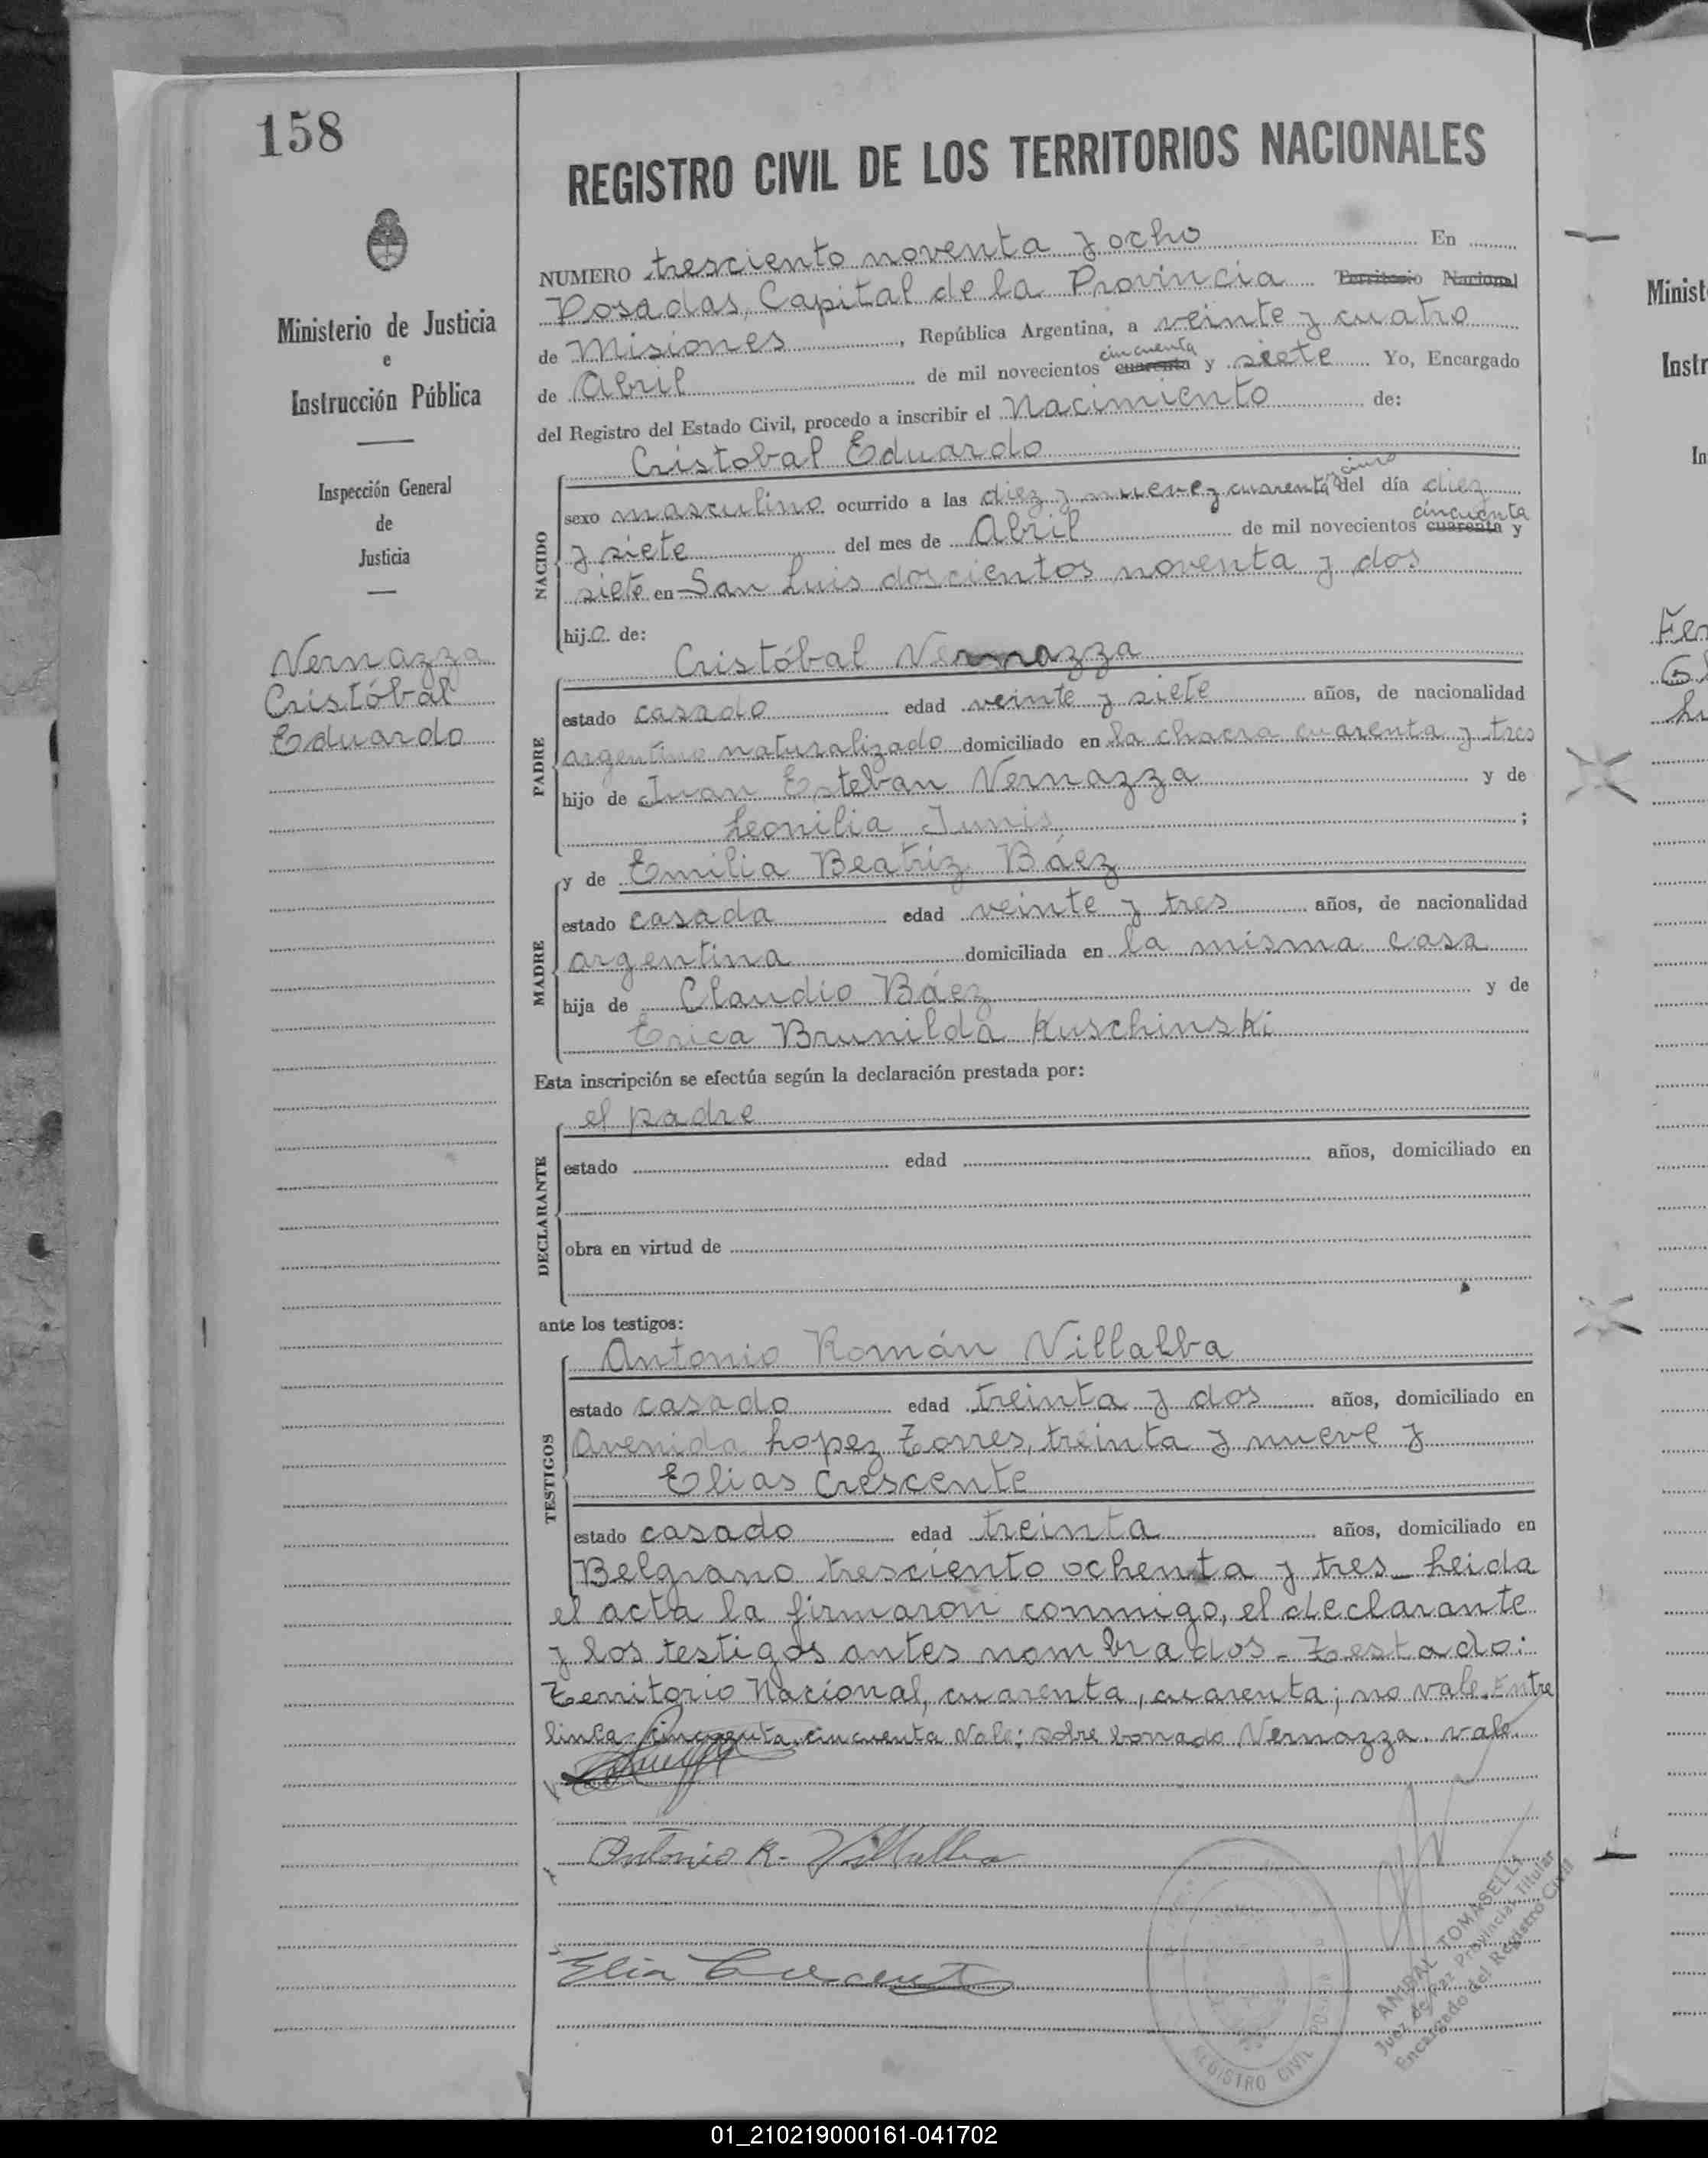 158
REGISTRO CIVIL DE LOS TERRITORIOS NACIONALES
Ministerio de Justicia
e
Instrucción Pública
Inspección General
de
Justicia
Vernazza
Cristóbal
Eduardo
NUMERO tresciento noventa y ocho En
Posadas, Capital de la Provincia Territorio Nacional
de Misiones, República Argentina, a veinte y cuatro
cincuenta
de Abril de mil novecientos cuarenta y siete Yo, Encargado
del Registro del Estado Civil, procedo a inscribir el Nacimiento de:
Cristobal Eduardo
NACIDO
y cinco
sexo masculino ocurrido a las diez y nueve y cuarenta del día diez
cincuenta
y siete del mes de Abril de mil novecientos cuarenta y
siete en San Luis doscientos noventa y dos
hijo de:
Cristóbal Vernazza
PADRE
estado casado edad veinte y siete años, de nacionalidad
argentino naturalizado domiciliado en la chacra cuarenta y tres
hijo de Juan Esteban Vernazza y de
Leonilia Junis;
y de Emilia Beatriz Báez
MADRE
estado casada edad veinte y tres años, de nacionalidad
argentina domiciliada en la misma casa
hija de Claudio Báez y de
Erica Brunilda Kuschinski
Esta inscripción se efectúa según la declaración prestada por:
el padre
DECLARANTE
estado edad años, domiciliado en
obra en virtud de
ante los testigos:
Antonio Román Villalba
TESTIGOS
estado casado edad treinta y dos años, domiciliado en
Avenida Lopez Torres, treinta y nueve y
Elias Crescente
estado casado edad treinta años, domiciliado en
Belgrano tresciento ochenta y tres_ Leida
el acta la firmaron conmigo, el declarante
y los testigos antes nombrados - Testado:
Territorio Nacional, cuarenta, cuarenta; no vale. Entre
linea cincuenta, cincuenta Vale; sobre borrado Vernazza. vale.
Antonio R. Villalba
Elias Crescente
REGISTRO CIVIL
ANIBAL TOMASELLI
Juez de Paz Provincial Titular
Encargado del Registro Civil
Minist
Instr
In
Fer
01_210219000161-041702